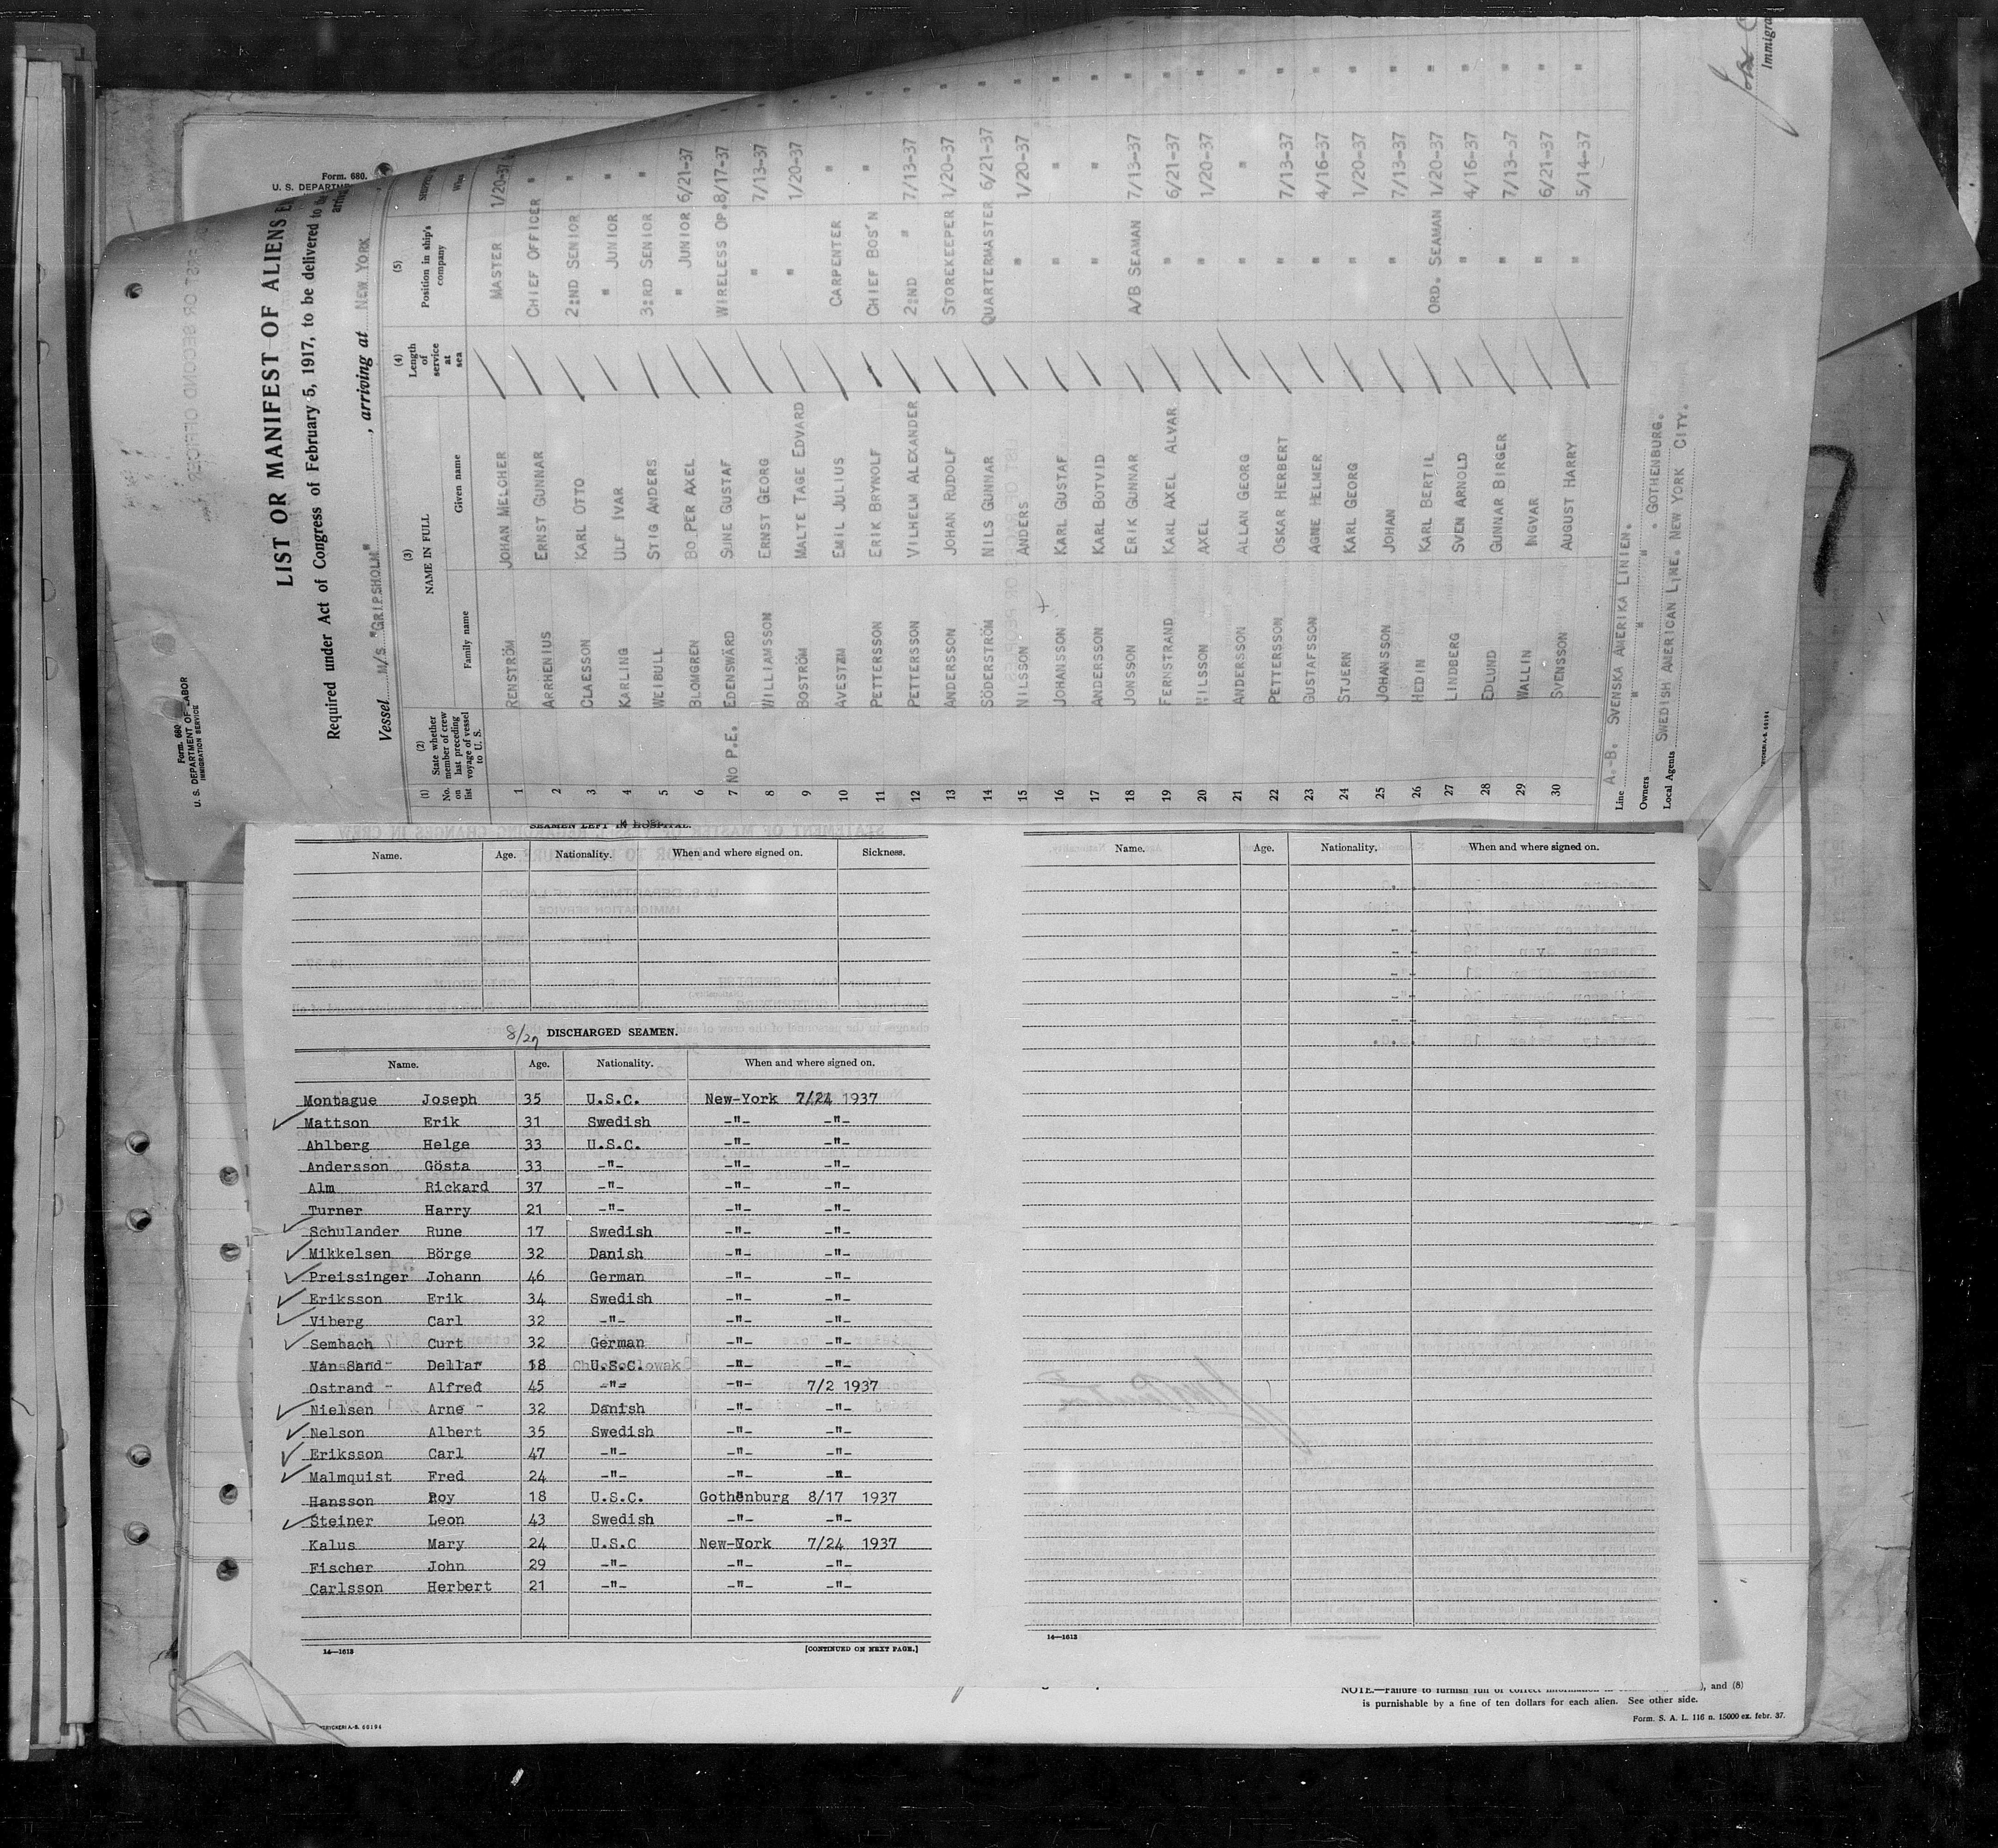 Form. 680.
U. S. DEPARTM
Form. 680
U. S. DEPARTMENT OF LABOR
IMMIGRATION SERVICE
LIST OR MANIFEST OF ALIENS
Required under Act of Congress of February 5, 1917, to be delivered to the
Vessel M/S "GRIPSHOLM", arriving at NEW YORK
(1) (2) (3) (4) (5)
No. on list State whether member of crew last preceding voyage of vessel to U. S. NAME IN FULL Family name Given name Length of service at sea Position in ship's company When
1 RENSTRÖM JOHAN MELCHER MASTER 1/20-37
2 ARRHENIUS ERNST GUNNAR CHIEF OFFICER "
3 CLAESSON KARL OTTO 2:ND SENIOR "
4 KARLING ULF IVAR " JUNIOR "
5 WEIBULL STIG ANDERS 3:RD SENIOR "
6 BLOMGREN BO PER AXEL " JUNIOR 6/21-37
7 NO P.E. EDENSWÄRD SUNE GUSTAF WIRELESS OP. 8/17-37
8 WILLIAMSSON ERNST GEORG " 7/13-37
9 BOSTRÖM MALTE TAGE EDVARD " 1/20-37
10 AVESTAM EMIL JULIUS CARPENTER "
11 PETTERSSON ERIK BRYNOLF CHIEF BOS'N "
12 PETTERSSON VILHELM ALEXANDER 2:ND " 7/13-37
13 ANDERSSON JOHAN RUDOLF STOREKEEPER 1/20-37
14 SÖDERSTRÖM NILS GUNNAR QUARTERMASTER 6/21-37
15 NILSSON ANDERS " 1/20-37
16 JOHANSSON KARL GUSTAF " "
17 ANDERSSON KARL BOTVID " "
18 JONSSON ERIK GUNNAR A/B SEAMAN 7/13-37
19 FERNSTRAND KARL AXEL ALVAR " 6/21-37
20 NILSSON AXEL " 1/20-37
21 ANDERSSON ALLAN GEORG " "
22 PETTERSSON OSKAR HERBERT " 7/13-37
23 GUSTAFSSON AGNE HELMER " 4/16-37
24 STJERN KARL GEORG " 1/20-37
25 JOHANSSON JOHAN " 7/13-37
26 HEDIN KARL BERTIL ORD. SEAMAN 1/20-37
27 LINDBERG SVEN ARNOLD " 4/16-37
28 EDLUND GUNNAR BIRGER " 7/13-37
29 WALLIN INGVAR " 6/21-37
30 SVENSSON AUGUST HARRY " 5/14-37
Line A.-B. SVENSKA AMERIKA LINIEN.
Owners " " " . GOTHENBURG.
Local Agents SWEDISH AMERICAN LINE. NEW YORK CITY.
Immigra
SEAMEN LEFT IN HOSPITAL.
Name. Age. Nationality. When and where signed on. Sickness.
8/27 DISCHARGED SEAMEN.
Name. Age. Nationality. When and where signed on.
Montague Joseph 35 U.S.C. New-York 7/24 1937
Mattson Erik 31 Swedish -"- -"-
Ahlberg Helge 33 U.S.C. -"- -"-
Andersson Gösta 33 -"- -"- -"-
Alm Rickard 37 -"- -"- -"-
Turner Harry 21 -"- -"- -"-
Schulander Rune 17 Swedish -"- -"-
Mikkelsen Börge 32 Danish -"- -"-
Preissinger Johann 46 German -"- -"-
Eriksson Erik 34 Swedish -"- -"-
Viberg Carl 32 -"- -"- -"-
Sembach Curt 32 German -"- -"-
Dellar 18 U.S.C. -"- -"-
Ostrand - Alfred 45 -"- -"- 7/2 1937
Nielsen Arne - 32 Danish -"- -"-
Nelson Albert 35 Swedish -"- -"-
Eriksson Carl 47 -"- -"- -"-
Malmquist Fred 24 -"- -"- -"-
Hansson Roy 18 U.S.C. Gothenburg 8/17 1937
Steiner Leon 43 Swedish -"- -"-
Kalus Mary 24 U.S.C New-York 7/24 1937
Fischer John 29 -"- -"- -"-
Carlsson Herbert 21 -"- -"- -"-
14—1613
[CONTINUED ON NEXT PAGE.]
Name. Age. Nationality. When and where signed on.
14—1613
NOTE.—Failure to furnish full or correct information ), and (8)
is punishable by a fine of ten dollars for each alien. See other side.
Form. S. A. L. 116 n. 15000 ex. febr. 37.